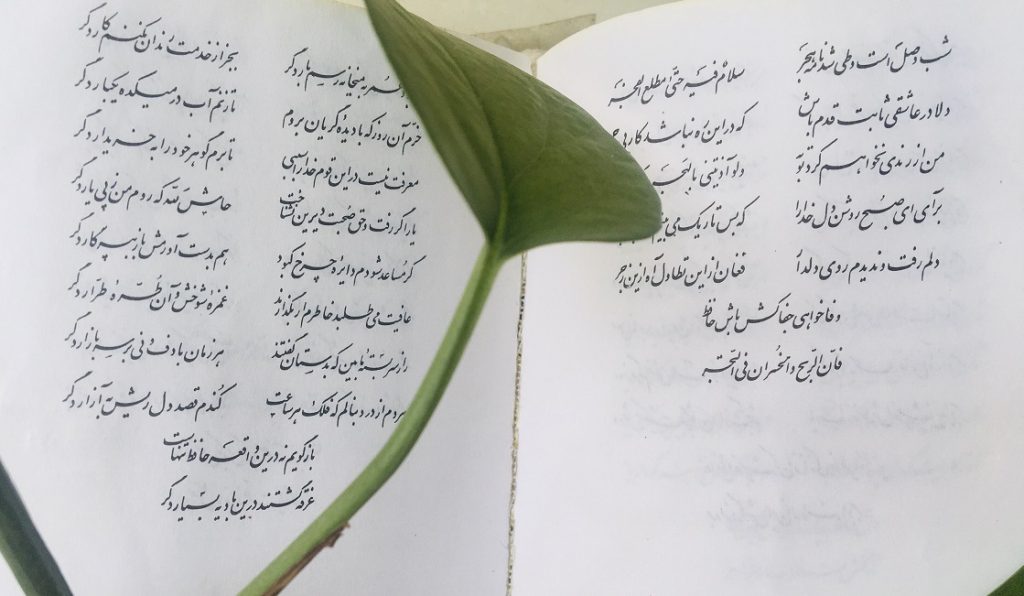 شب وصل است و طی شد نامه هجر سلام فیه حتی مطلع الفجر
دلا در عاشقی ثابت قدم باش که در این ره نباشد کار بی
من از رندی نخواهم کرد توبه ولو آذیتنی بالهجر
برآی ای صبح روشن دل خدا را که بس تاریک می بینم
دلم رفت و ندیدم روی دلدار فغان از این تطاول آه ازین زجر
وفا خواهی جفاکش باش حافظ
فان الربح والخسران فی التجر
عمر به میخانه رسم بار دگر بجز از خدمت رندان نکنم کار دگر
خرم آن روز که با دیدهٔ گریان بروم تا زنم آب در میکده یکبار دگر
معرفت نیست در این قوم خدا را سببی تا برم گوهر خود را به خریدار دگر
یار اگر رفت و حق صحبت دیرین نشناخت حاش لله که روم من ز پی یار دگر
گر مساعد شودم دایرهٔ چرخ کبود هم بدست آورمش باز به پرگار دگر
عافیت می طلبد خاطرم ار بگذارند غمزهٔ شوخش و آن طرهٔ طرار دگر
راز سربستهٔ ما بین که بدستان گفتند هر زمان با دف و نی بر سر بازار دگر
هر دم از درد بنالم که فلک هر ساعت کندم قصد دل ریش به آزار دگر
باز گویم نه درین واقعه حافظ تنهاست
غرقه گشتند درین بادیه بسیار دگر